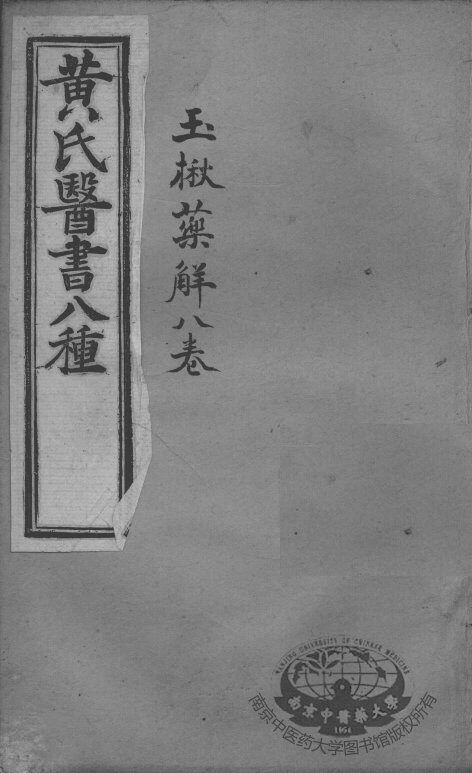 黄氏醫書八種
玉楸藥解八卷
NANJING UNIVERSITY OF CHINESE MEDICINE
南京中醫藥大學
1954
南京中医药大学图书馆版权所有